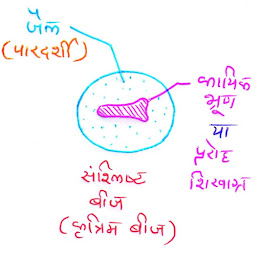 जैल
(पारदर्शी)
कायिक
भ्रूण
या
प्ररोह
शिखाग्र
संश्लिष्ट
बीज
(कृत्रिम बीज)